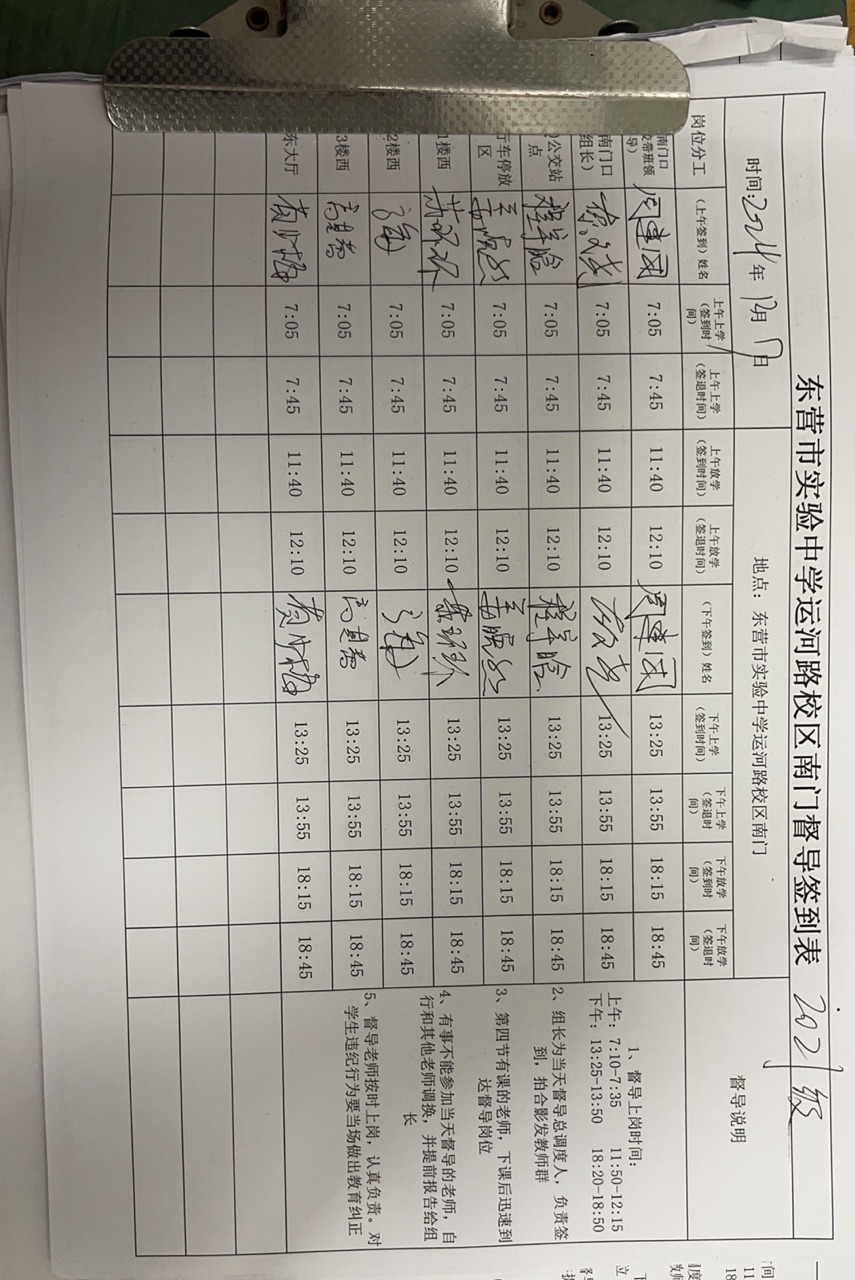 东营市实验中学运河路校区南门督导签到表 2021级
时间:2024年12月 日 地点：东营市实验中学运河路校区南门 督导说明
岗位分工 (上午签到)姓名 上午上学(签到时间) 上午上学(签退时间) 上午放学(签到时间) 上午放学(签退时间) (下午签到)姓名 下午上学(签到时间) 下午上学(签退时间) 下午放学(签到时间) 下午放学(签退时间)
南门口
带班领
导) 周建国 7:05 7:45 11:40 12:10 周建国 13:25 13:55 18:15 18:45
南门口
组长) 7:05 7:45 11:40 12:10 13:25 13:55 18:15 18:45
公交站
点 程学晗 7:05 7:45 11:40 12:10 程学晗 13:25 13:55 18:15 18:45
行车停放
区 7:05 7:45 11:40 12:10 13:25 13:55 18:15 18:45
1楼西 7:05 7:45 11:40 12:10 13:25 13:55 18:15 18:45
2楼西 7:05 7:45 11:40 12:10 13:25 13:55 18:15 18:45
3楼西 7:05 7:45 11:40 12:10 13:25 13:55 18:15 18:45
东大厅 7:05 7:45 11:40 12:10 13:25 13:55 18:15 18:45
1、督导上岗时间：
上午：7:10-7:35 11:50-12:15
下午：13:25-13:50 18:20-18:50
2、组长为当天督导总调度人，负责签
到，拍合影发教师群
3、第四节有课的老师，下课后迅速到
达督导岗位
4、有事不能参加当天督导的老师，自
行和其他老师调换，并提前报告给组
长
5、督导老师按时上岗，认真负责。对
学生违纪行为要当场做出教育纠正